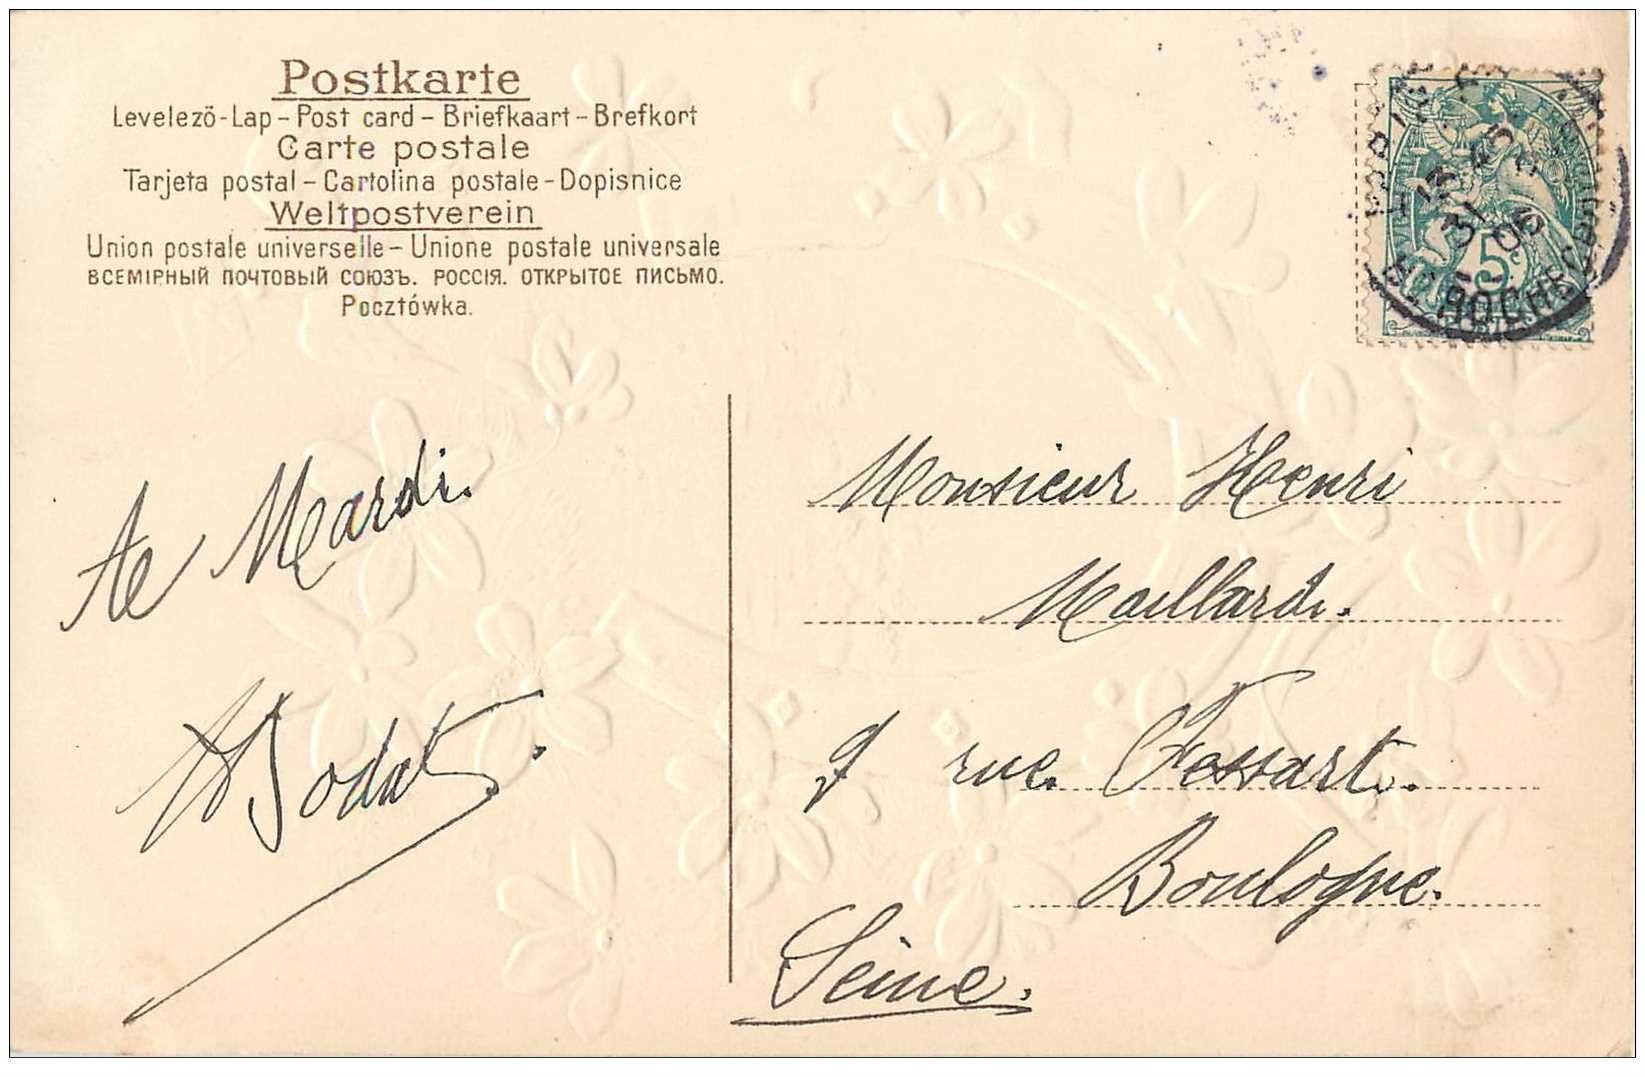 Postkarte
Levelező-Lap – Post card – Briefkaart – Brefkort
Carte postale
Tarjeta postal – Cartolina postale – Dopisnice
Weltpostverein
Union postale universelle – Unione postale universale
ВСЕМІРНЫЙ ПОЧТОВЫЙ СОЮЗЪ. РОССІЯ. ОТКРЫТОЕ ПИСЬМО.
Pocztówka.
13 45
31
06
5c
POSTES
Ae Mardi.
Monsieur Henri
Maillard.
9 rue Fessart.
Boulogne.
Seine.